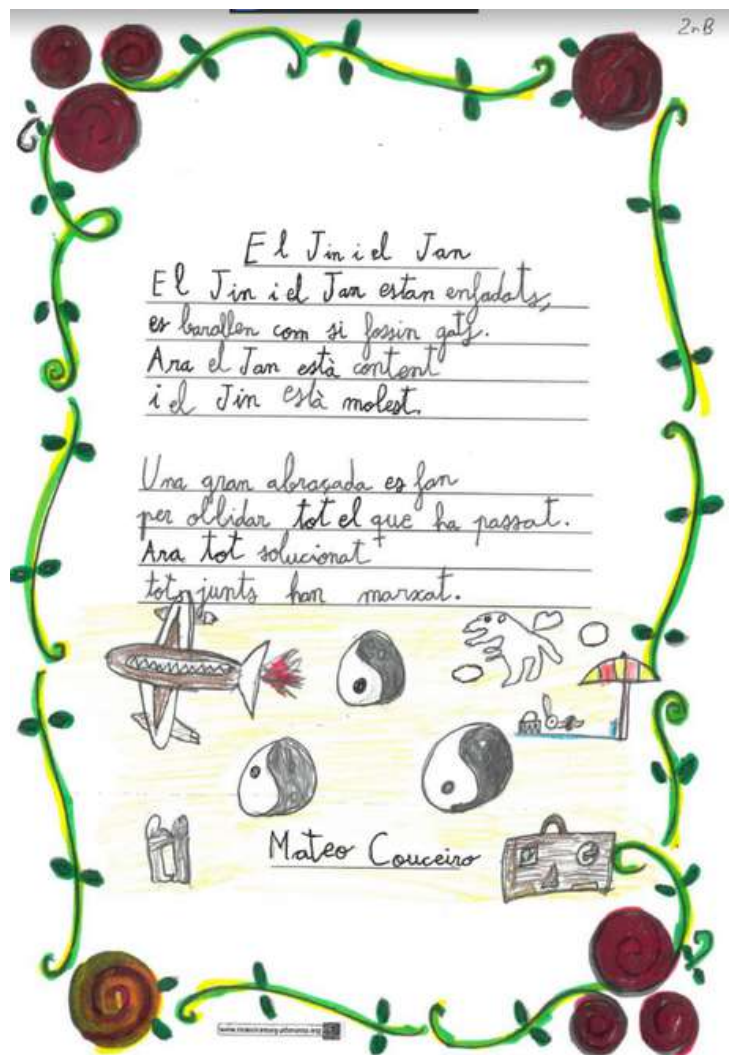 2nB
El Jin i el Jan
El Jin i el Jan estan enfadats,
es barallen com si fossin gats.
Ara el Jan està content
i el Jin està molest.
Una gran abraçada es fan
per olbidar tot el que ha passat.
Ara tot solucionat
tots junts han marxat.
Mateo Couceiro